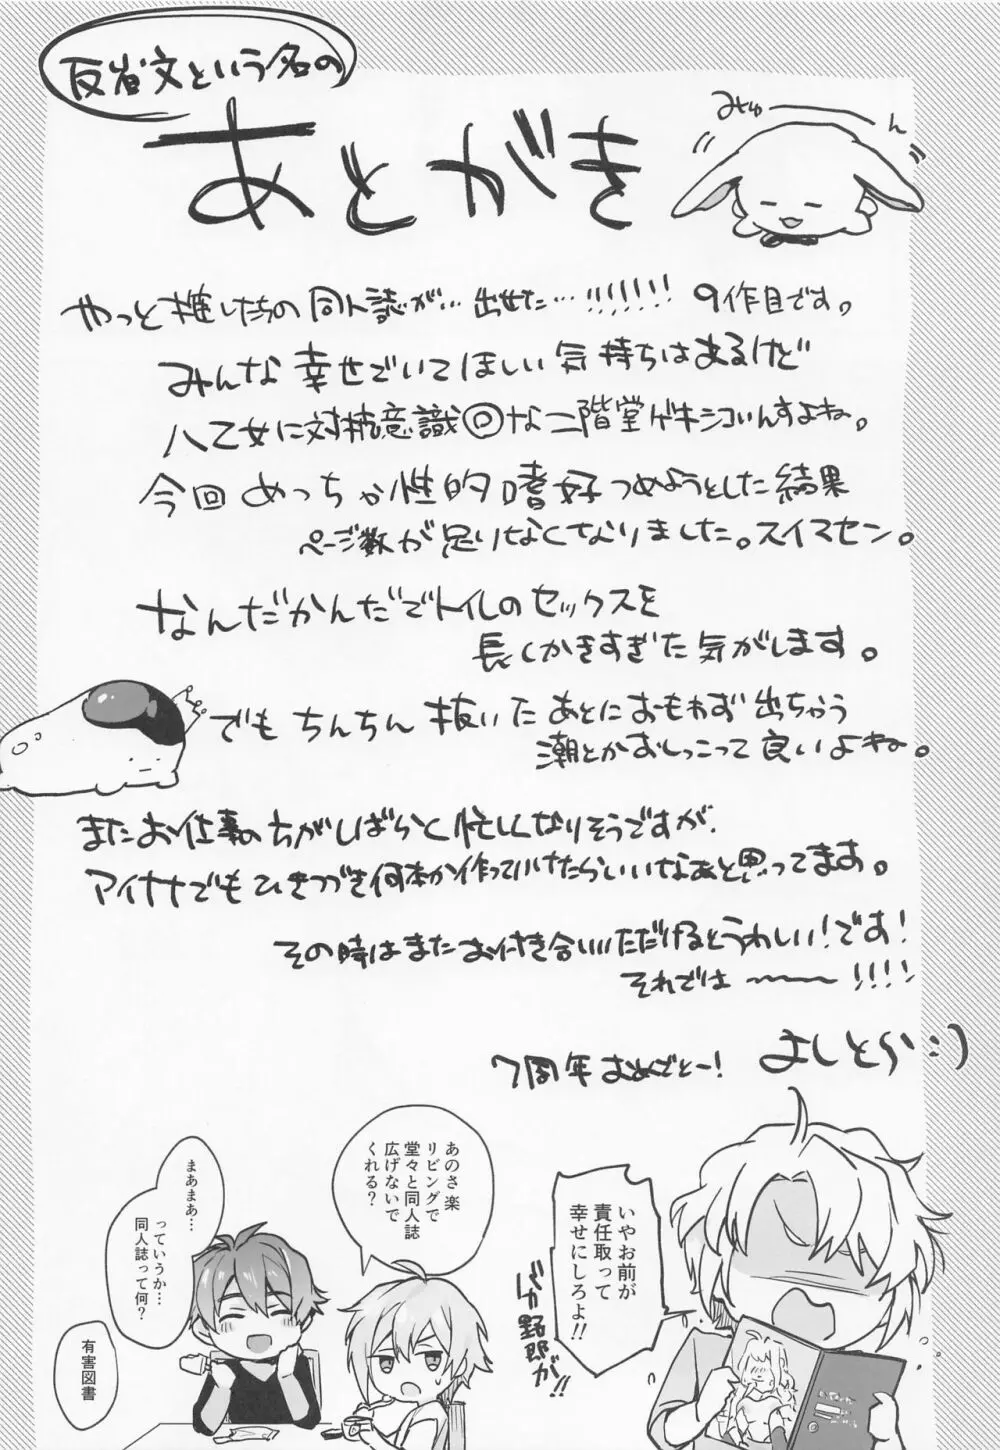 反省文という名の
あとがき
みゅーーーん
やっと推したちの同人誌が…出せた…!!!!!!! 9作目です。
みんな幸せでいてほしい気持ちはあるけど
八乙女に対抗意識◎な二階堂ゲキシコいんすよね。
今回めっちゃ性的嗜好つめようとした結果
ページ数が足りなくなりました。スイマセン。
なんだかんだでトイレのセックスを
長くかきすぎた気がします。
でもちんちん抜いたあとにおもわず出ちゃう
潮とかおしっこって良いよね。
またお仕事の方がしばらく忙しくなりそうですが、
アイナナでもひきつづき何本か作っていけたらいいなあと思ってます。
その時はまたお付き合いいただけるとうれしい!です!
それでは〜〜〜!!!!
よしとら:)
7周年おめでとー!
いやお前が
責任取って
幸せにしろよ!!
バカ野郎が!!
あのさ楽
リビングで
堂々と同人誌
広げないで
くれる?
まあまあ…
っていうか…
同人誌って何?
有害図書